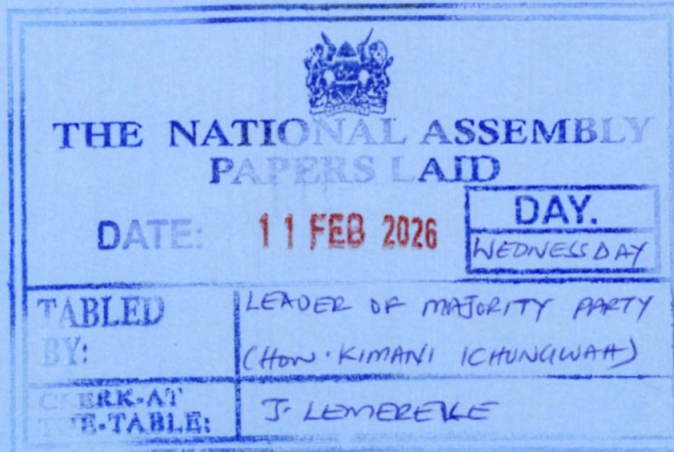 THE NATIONAL ASSEMBLY
PAPERS LAID
DATE: 11 FEB 2026
DAY.
WEDNESSDAY
TABLED BY:
LEADER OF MAJORITY PARTY
(HON. KIMANI ICHUNGWAH)
CLERK-AT THE-TABLE:
J. LEMERELLE